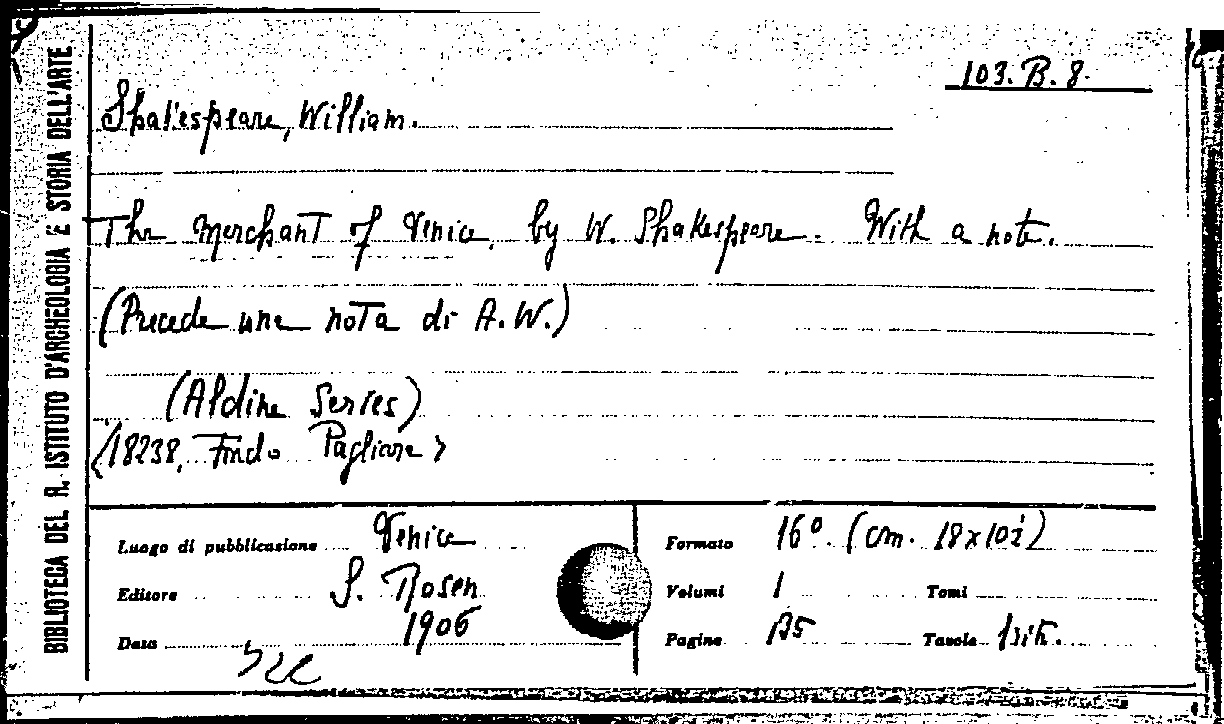 103. B. 8.
Shakespeare, William.
The merchant of Venice, by W. Shakespeare. With a note.
(Precede una nota di A. W.)
(Aldine Series)
<18238, Fondo Pagliara>
BIBLIOTECA DEL R. ISTITUTO D'ARCHEOLOGIA E STORIA DELL'ARTE
Luogo di pubblicazione Venice
Editore S. Rosen
Data 1906
Formato 16°. (cm. 18x10½)
Volumi 1 Tomi
Pagine Tavole